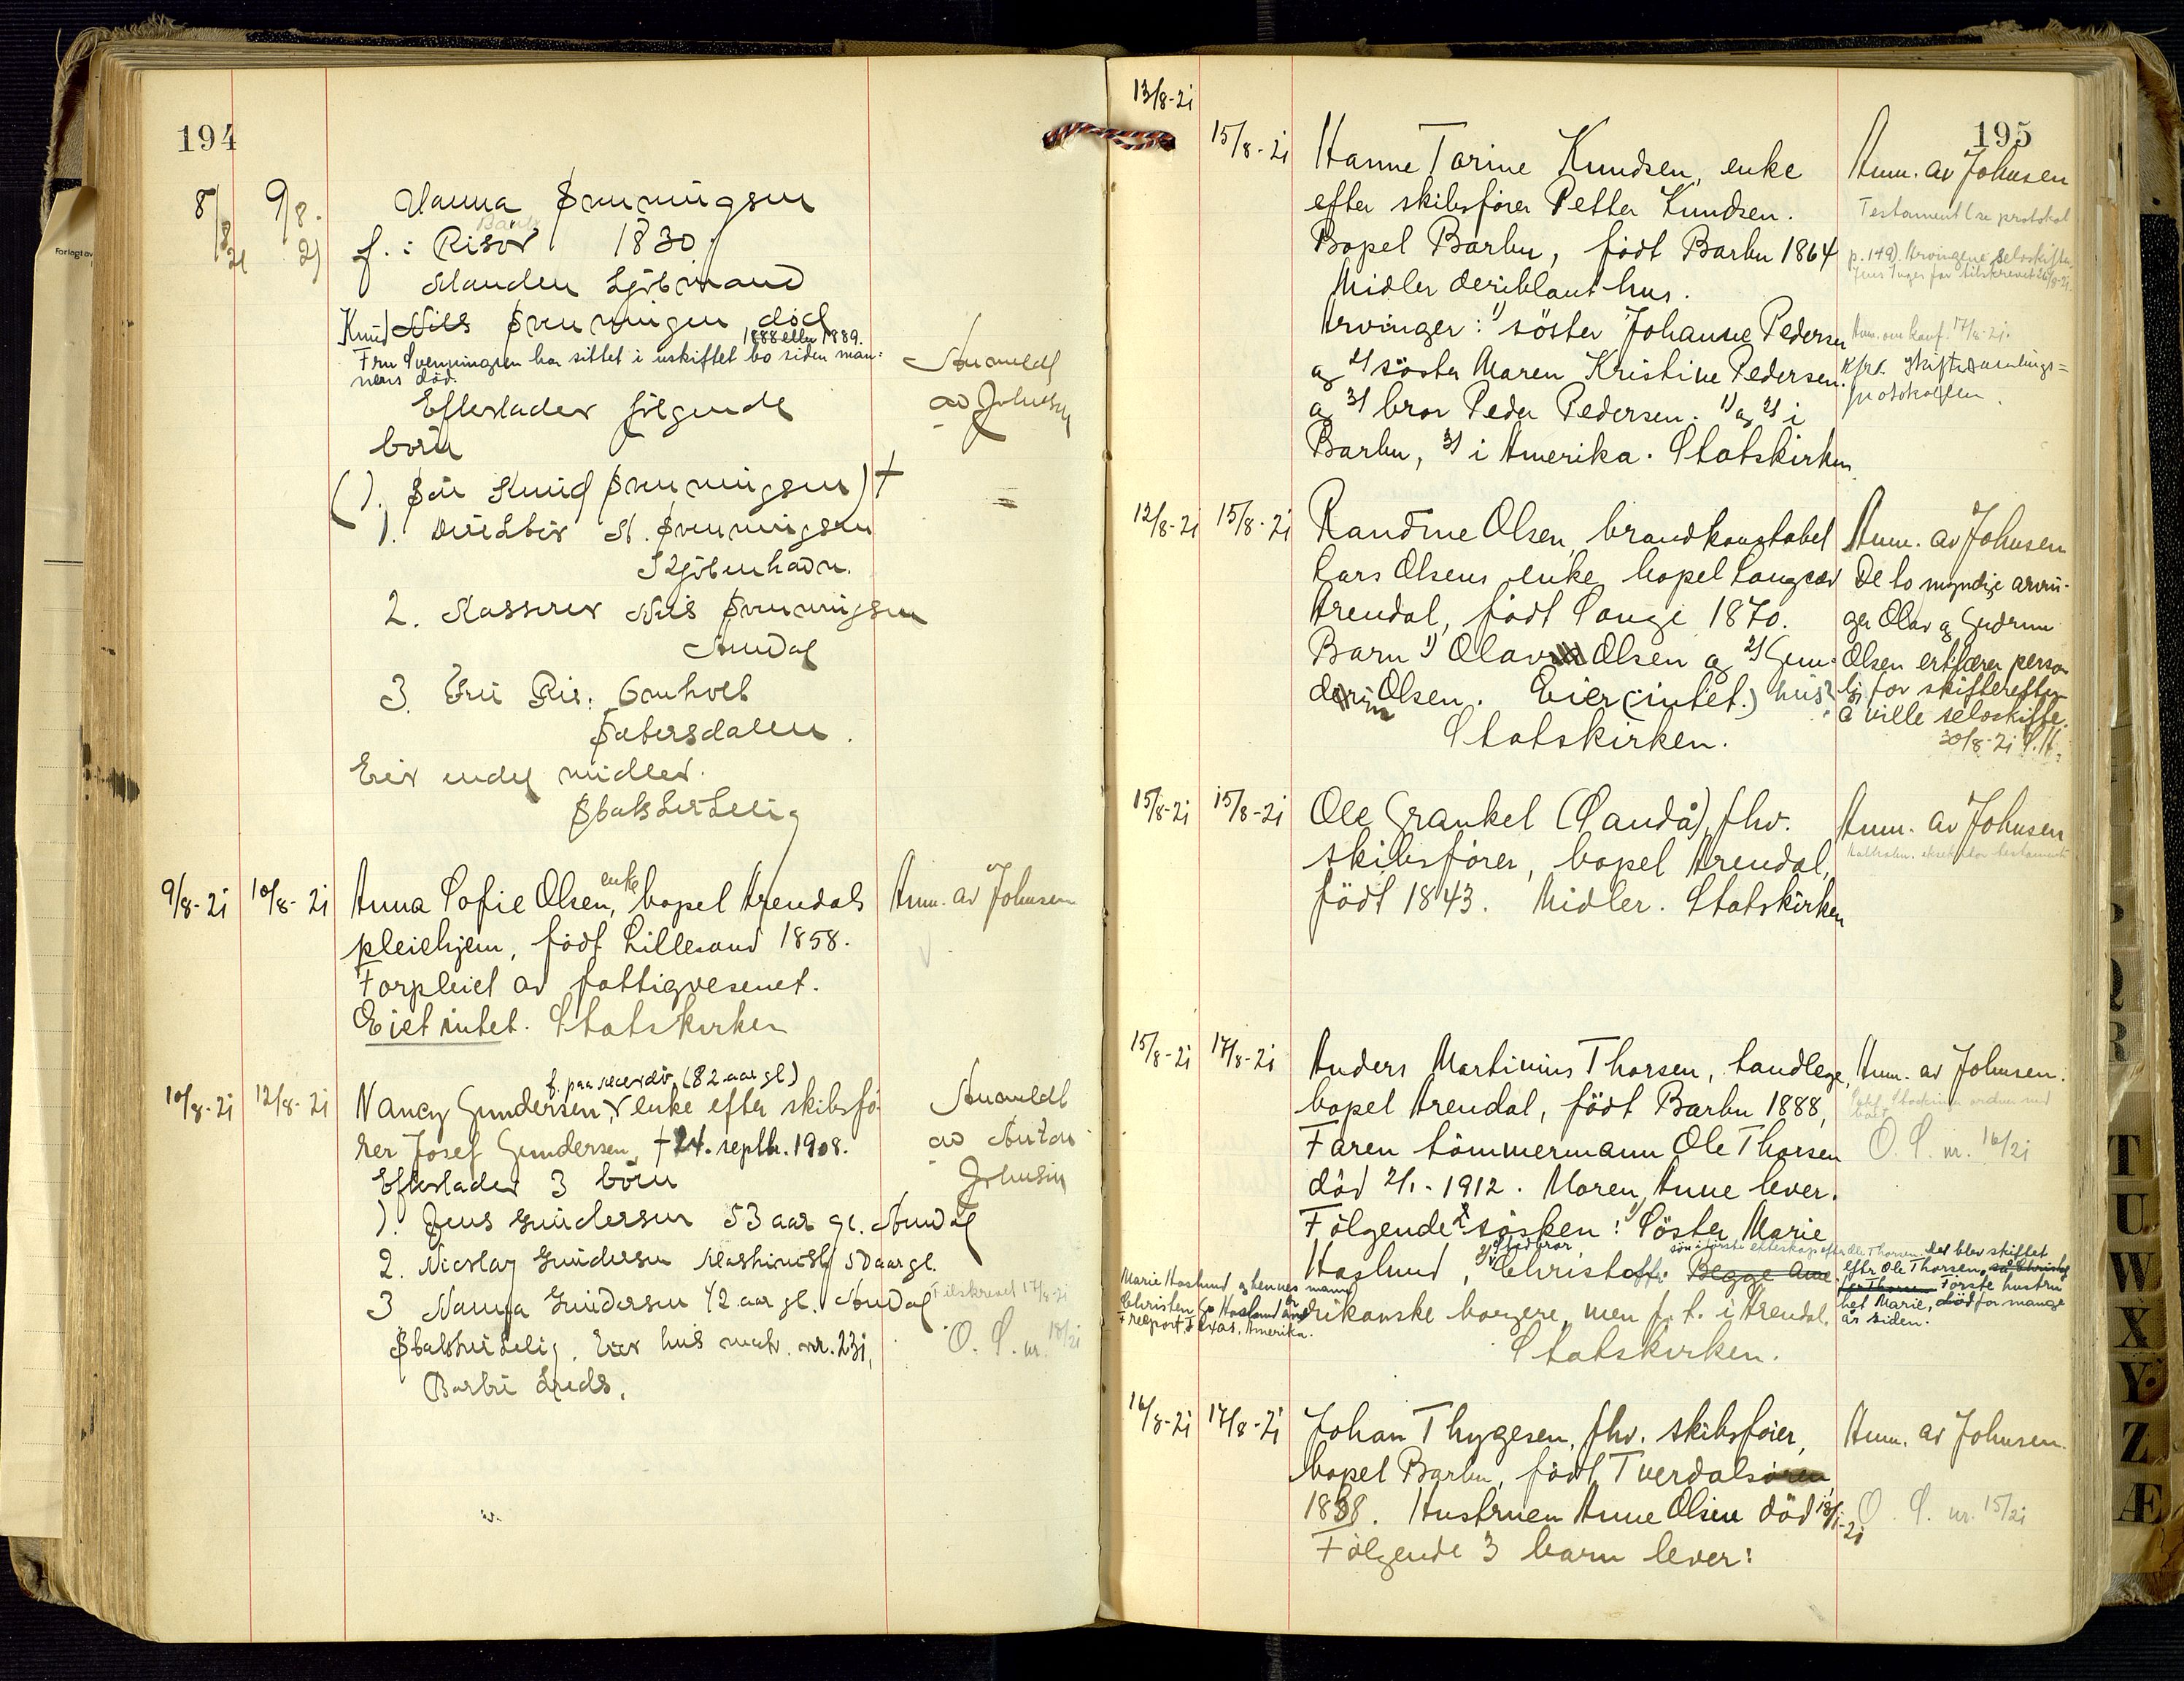 194
8/8 21 9/8. 21 Hanna Svenningsen
Barbu
f. : Risør 1830
Manden Sjømand
Knud Nils Svenningsen død
1888 eller 1889.
Fru Svenningsen har sittet i uskiftet bo siden man-
nens død.
Anmeldt
Efterlader følgende
av Johnsen
børn
(). Søn Knud Svenningsen) †
1. N. Svenningsen
Kjøbenhavn.
2. Kasserer Nils Svenningsen
Arendal
3. Fru
Sætersdalen.
Eier endel midler.
Statskirkelig
9/8-21 10/8-21 Anna Sofie Olsen, enke, bopel Arendals
Anm. av Johnsen
pleiehjem, født Lillesand 1858.
Forpleiet av fattigvesenet.
Eiet intet. Statskirken
f. paa (82 aar gl.)
10/8-21 12/8-21 Nancy Gundersen, enke efter skibsfø-
Anmeldt
rer Josef Gundersen, † 24. septbr. 1908.
av Anton
Efterlader 3 børn
Johnsen
1). Jens Gundersen 53 aar gl. Arendal
2. Nicolay Gundersen Maskinist 50 aar gl.
3 Nanna Gundersen 42 aar gl. Arendal
Tilskrevet 17/8-21
Statskirkelig. Eier hus matr. nr. 231,
O. S. nr. 18/21
Barbu
195
13/8-21
15/8-21 Hanne Torine Knudsen, enke
Anm. av Johnsen
efter skibsfører Petter Knudsen.
Testament (se protokol
Bopel Barbu, født Barbu 1864
p. 149). Arvingene selvskifter.
Midler deriblant hus.
Arvinger: 1) søster Johanne Pedersen
17/8-21.
og 2) søster Maren Kristine Pedersen.
Kfr. skiftesamlings=
og 3) bror Peder Pedersen. 1) og 2) i
protokollen.
Barbu, 3) i Amerika. Statskirken
12/8-21 15/8-21 Randine Olsen, brandkonstabel
Anm. av Johnsen
Lars Olsens enke, bopel Langsæ
De to myndige arvin-
Arendal, født Songe 1870.
ger Olav og Gudrun
Barn 1) Olav Olsen og 2) Gun-
Olsen erklærer person-
Olsen. Eier (intet.) hus?
lig for skifteretten
å ville selvskifte.
Statskirken.
30/8-21 S.H.
15/8-21 15/8-21 Ole Grankel (Sandå), fhv.
Anm. av Johnsen
skibsfører, bopel Arendal,
født 1843. Midler. Statskirken
15/8-21 17/8-21 Anders Martinius Thorsen, tandlege,
Anm. av Johnsen.
bopel Arendal, født Barbu 1888,
Faren tømmermann Ole Thorsen
O. S. nr. 16/21
død 2/1-1912. Moren, Anne lever.
Følgende 2 søsken: 1) Søster Marie
søn i første ekteskap efter Ole Thorsen. Det blev skiftet
Haslund, 2) Christoffer Begge Ame-
efter Ole Thorsen,
Første hustru
Marie Haslund og hennes mann
het Marie, død for mange
Christen Haslund
rikanske borgere, men p. t. i Arendal.
år siden.
Freeport, Texas, Amerika.
Statskirken.
16/8-21 17/8-21 Johan Thygesen, fhv. skibsfører,
Anm. av Johnsen.
bopel Barbu, født Tverdalsøren
1838. Hustruen Anne Olsen død 18/1-21
O. S. nr. 15/21
Følgende 3 barn lever:
T
U
W
X
Y
Z
Æ